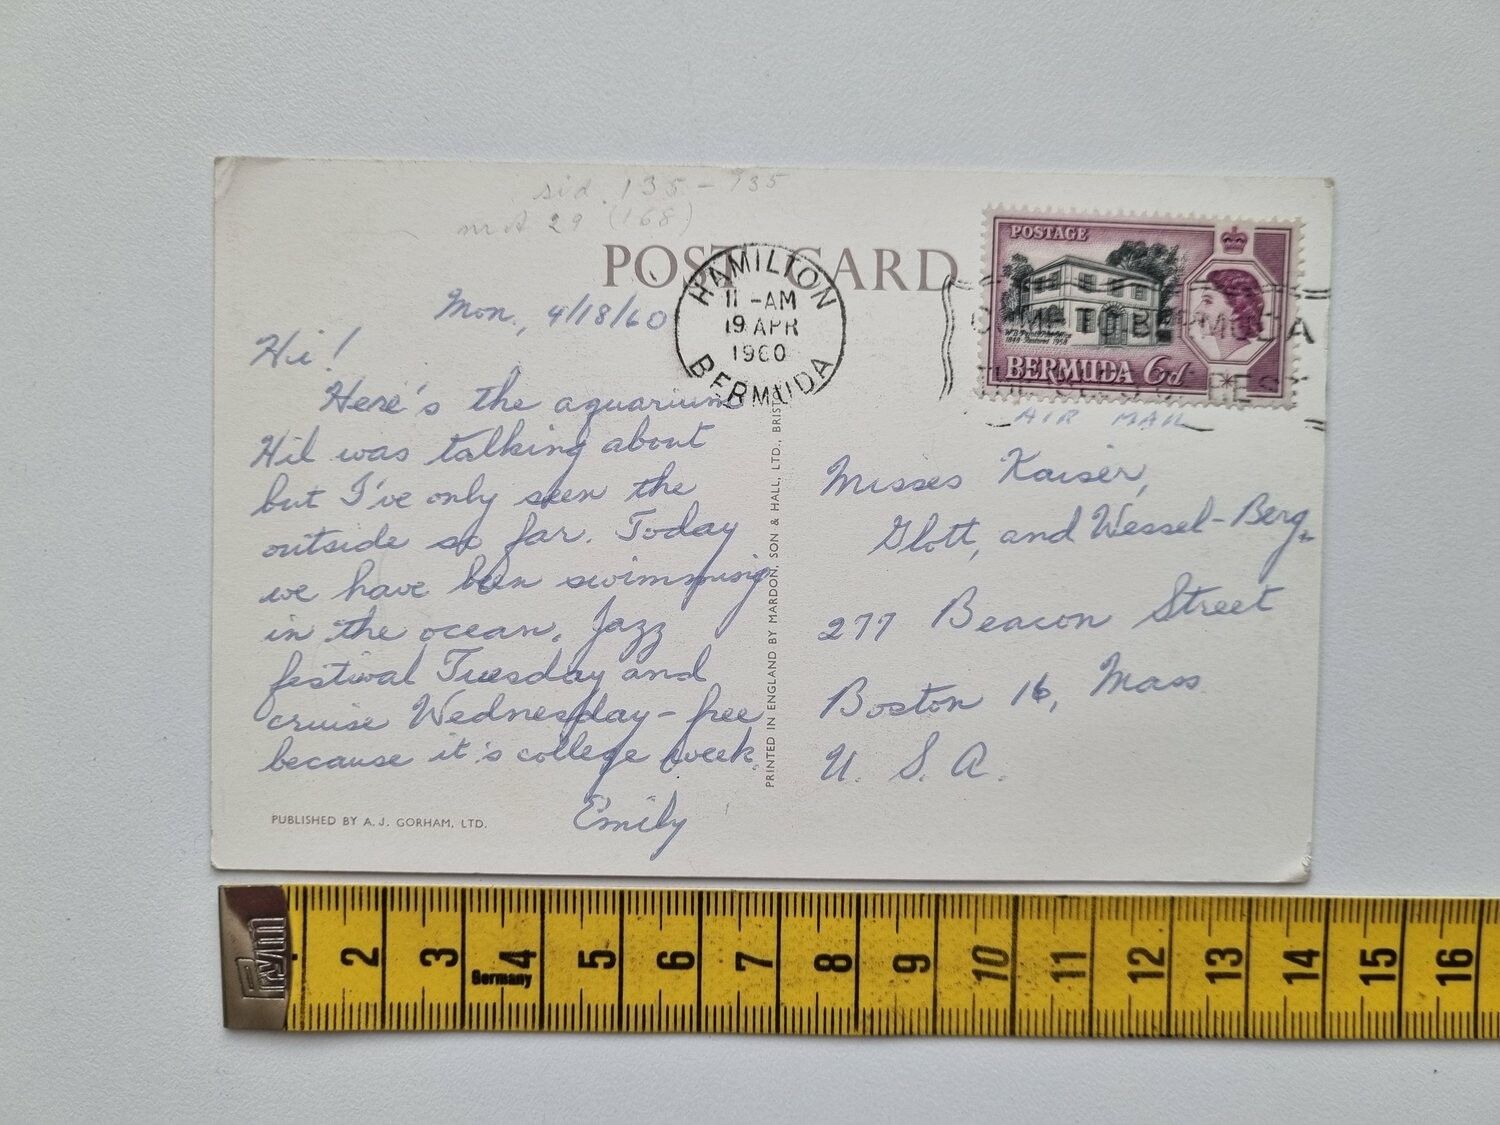 sid. 135 - 735
29 (168)
POST CARD
HAMILTON
11 -AM
19 APR
1960
BERMUDA
POSTAGE
BERMUDA 6d
COME TO BERMUDA
AIR MAIL
Mon., 4/18/60
Hi!
Here's the aquarium
Hil was talking about
but I've only seen the
outside so far. Today
we have been swimming
in the ocean. Jazz
festival Tuesday and
cruise Wednesday - free
because it's college week.
Emily
PUBLISHED BY A. J. GORHAM, LTD.
PRINTED IN ENGLAND BY MARDON, SON & HALL, LTD., BRIST
Misses Kaiser,
Glott, and Wessel-Berg
277 Beacon Street
Boston 16, Mass
U. S. A.
Prym
2 3 4 5 6 7 8 9 10 11 12 13 14 15 16
Germany